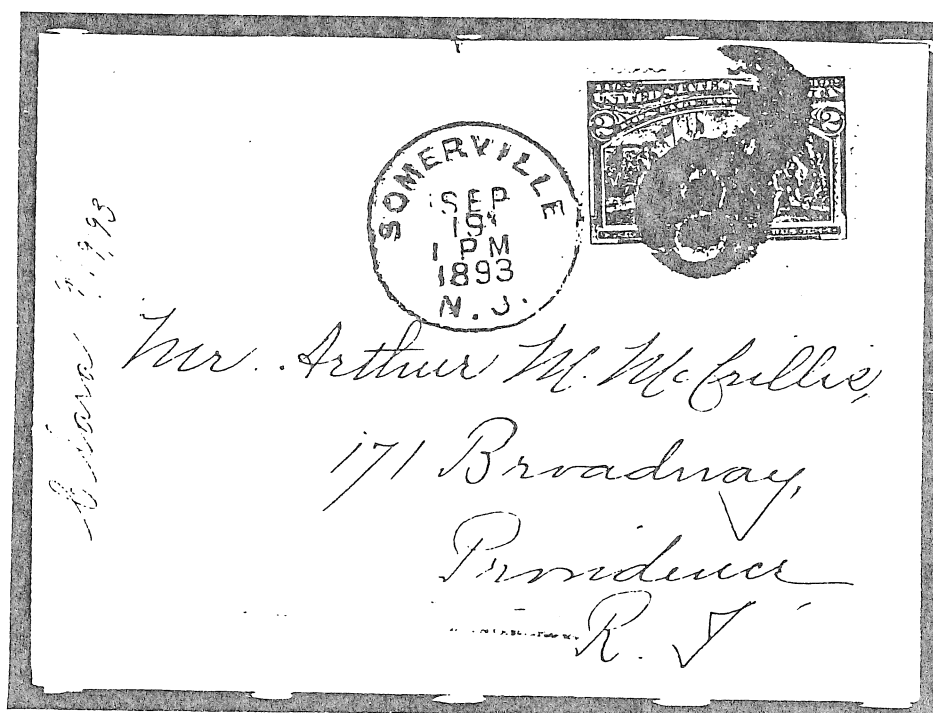 UNITED STATES
2 2
SOMERVILLE
SEP
19
1 PM
1893
N.J.
Mr. Arthur M. McCrillis,
171 Broadway,
Providence
R. I